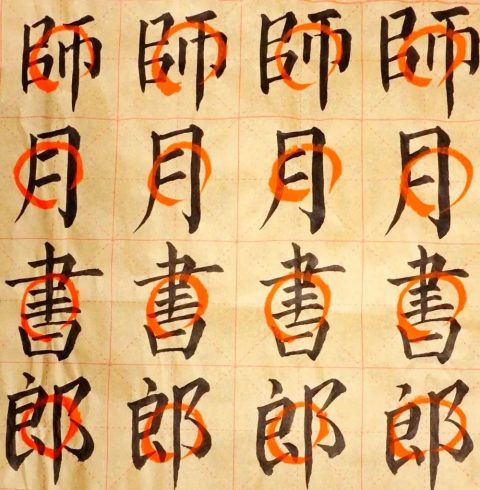 師師師師
月月月月
書書書書
郎郎郎郎